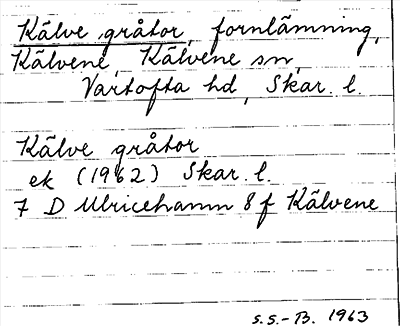 Kälve gråtor, fornlämning,
Kälvene, Kälvene sn,
Vartofta hd, Skar. l.
Kälve gråtor
ek (1962) Skar. l.
7 D Ulricehamn 8 f Kälvene
S.S.-B. 1963